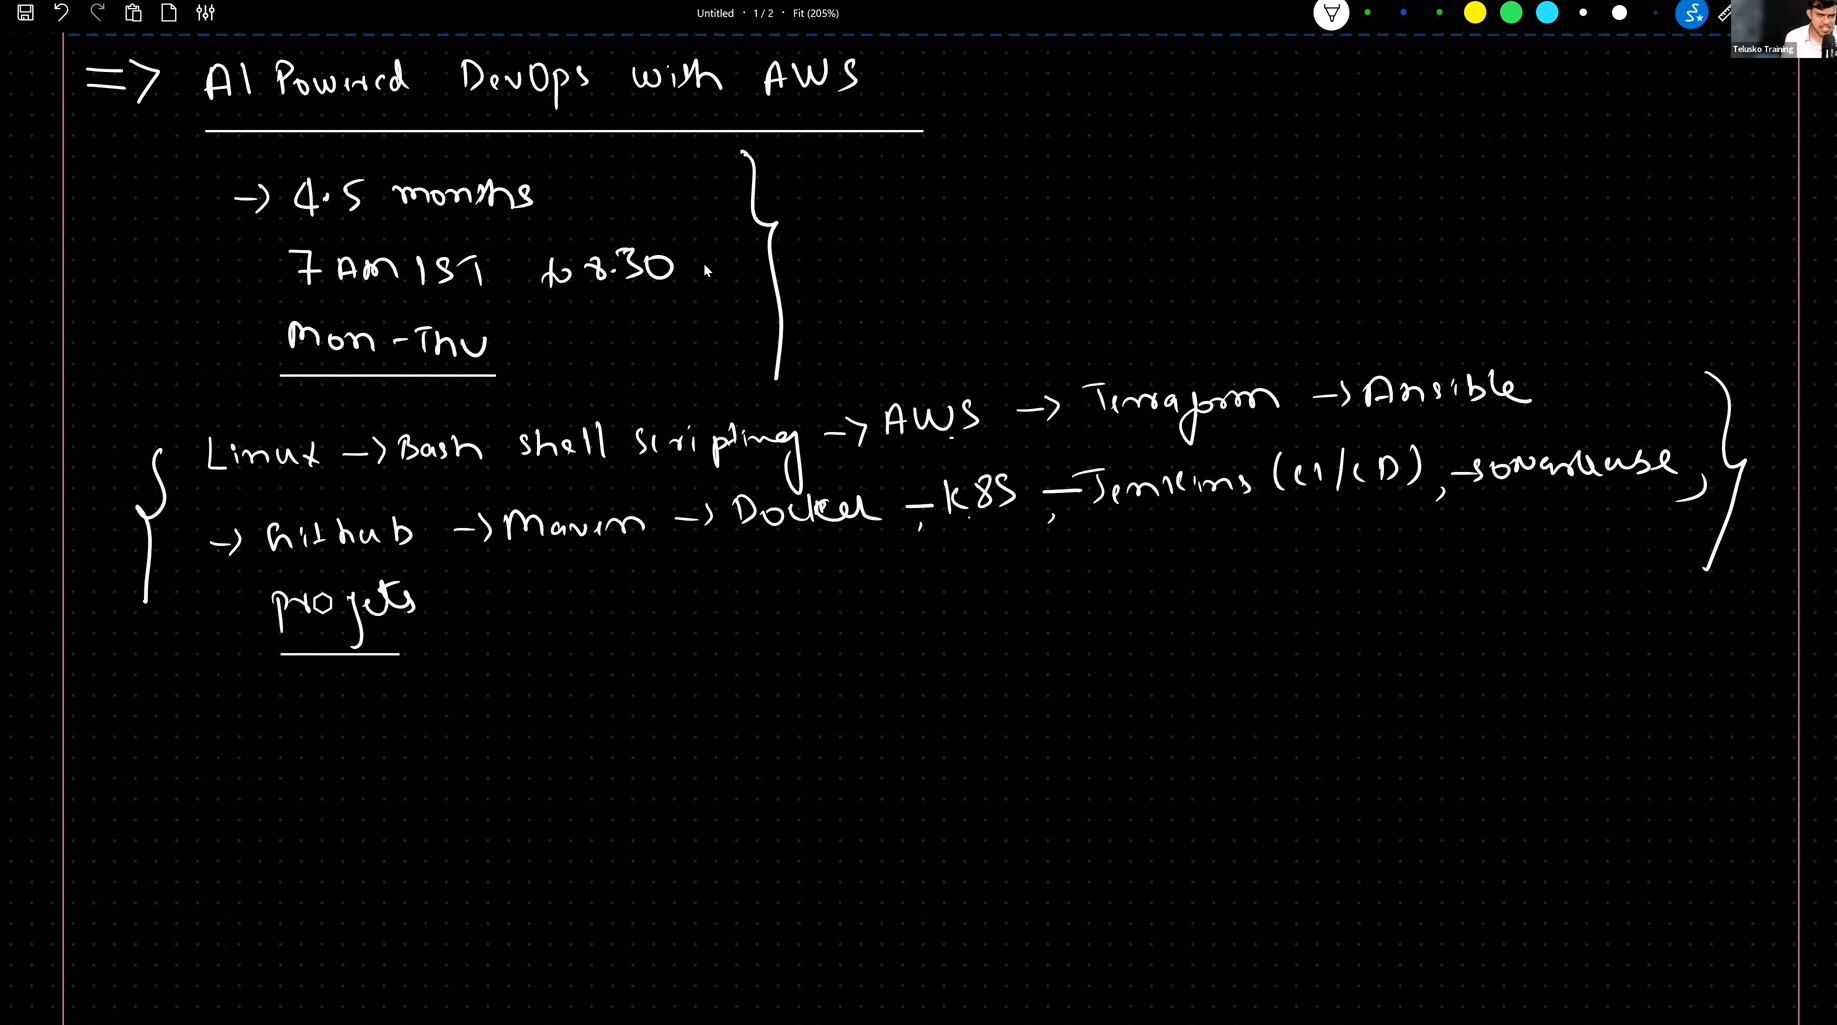 Untitled • 1 / 2 • Fit (205%)
Telusko Training
=> AI Powered DevOps with AWS
-> 4.5 months
7 AM IST to 8.30
Mon - Thu
Linux -> Bash shell scripting -> AWS -> Terraform -> Ansible
-> Github -> Maven -> Docker -, K8S -, Jenkins (CI/CD), -sonarqube,
projets